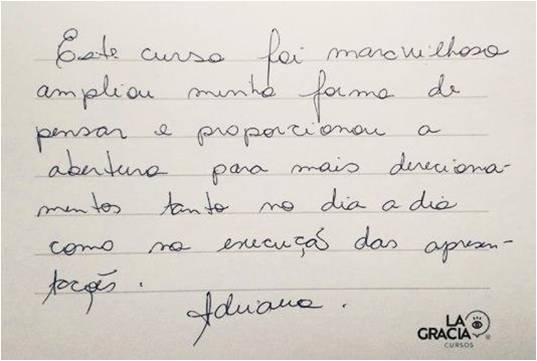 Este curso foi maravilhoso
ampliou minha forma de
pensar e proporcionou a
abertura para mais direciona-
mentos tanto no dia a dia
como na execuçã das apresen-
tações.
Adriana.
LA
GRACIA
CURSOS